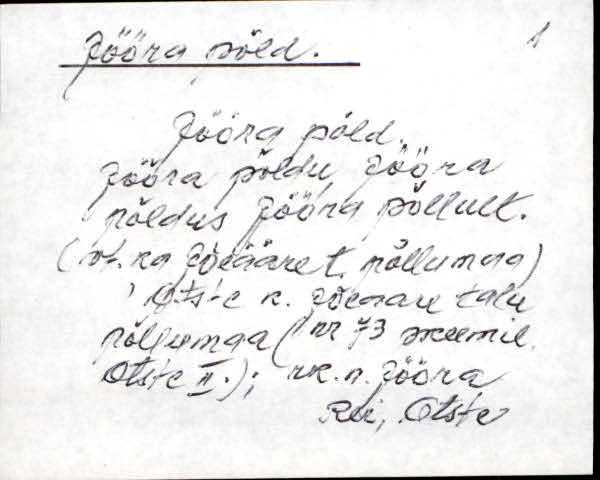 Jööra põld.
1
Jööra põld.
Jööra põldu, Jööra
põldus Jööra põllult.
(vt. ka Jõeääre t. põllumaa)
Otste k. Jõeääre talu
põllumaa (nr 73 skeemil
Otste II.); rk. n. Jööra
Rei, Otste